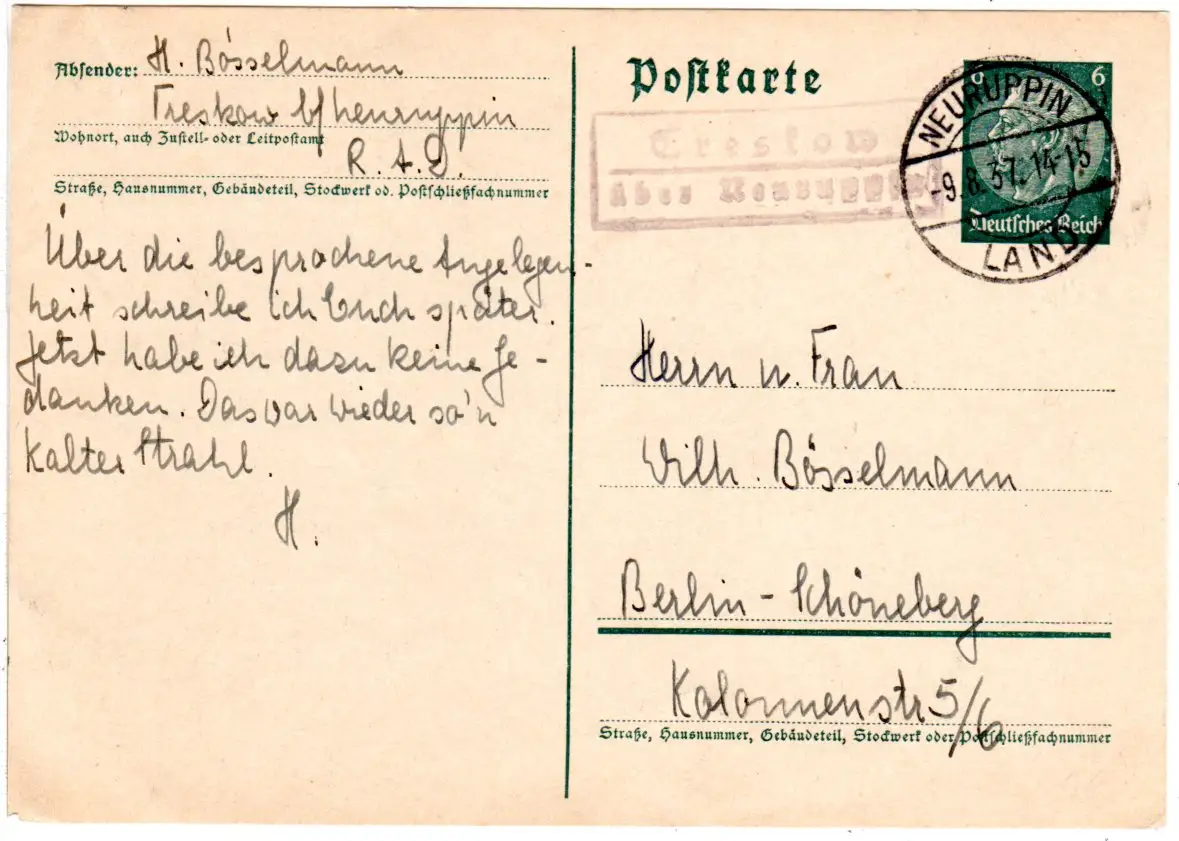 Absender: H. Bösselmann
Treskow b/Neuruppin
Wohnort, auch Zustell- oder Leitpostamt
R. A. D.
Straße, Hausnummer, Gebäudeteil, Stockwerk od. Postschließfachnummer
Über die besprochene Angelegen-
heit schreibe ich Euch später.
Jetzt habe ich dazu keine Ge-
danken. Das war wieder so'n
kalter Strahl.
H.
Postkarte
Treskow
über Neuruppin
6 6
Deutsches Reich
NEURUPPIN
-9.8.37.14-15
LAND
Herrn u. Frau
Wilh. Bösselmann
Berlin-Schöneberg
Kolonnenstr 5/6
Straße, Hausnummer, Gebäudeteil, Stockwerk oder Postschließfachnummer